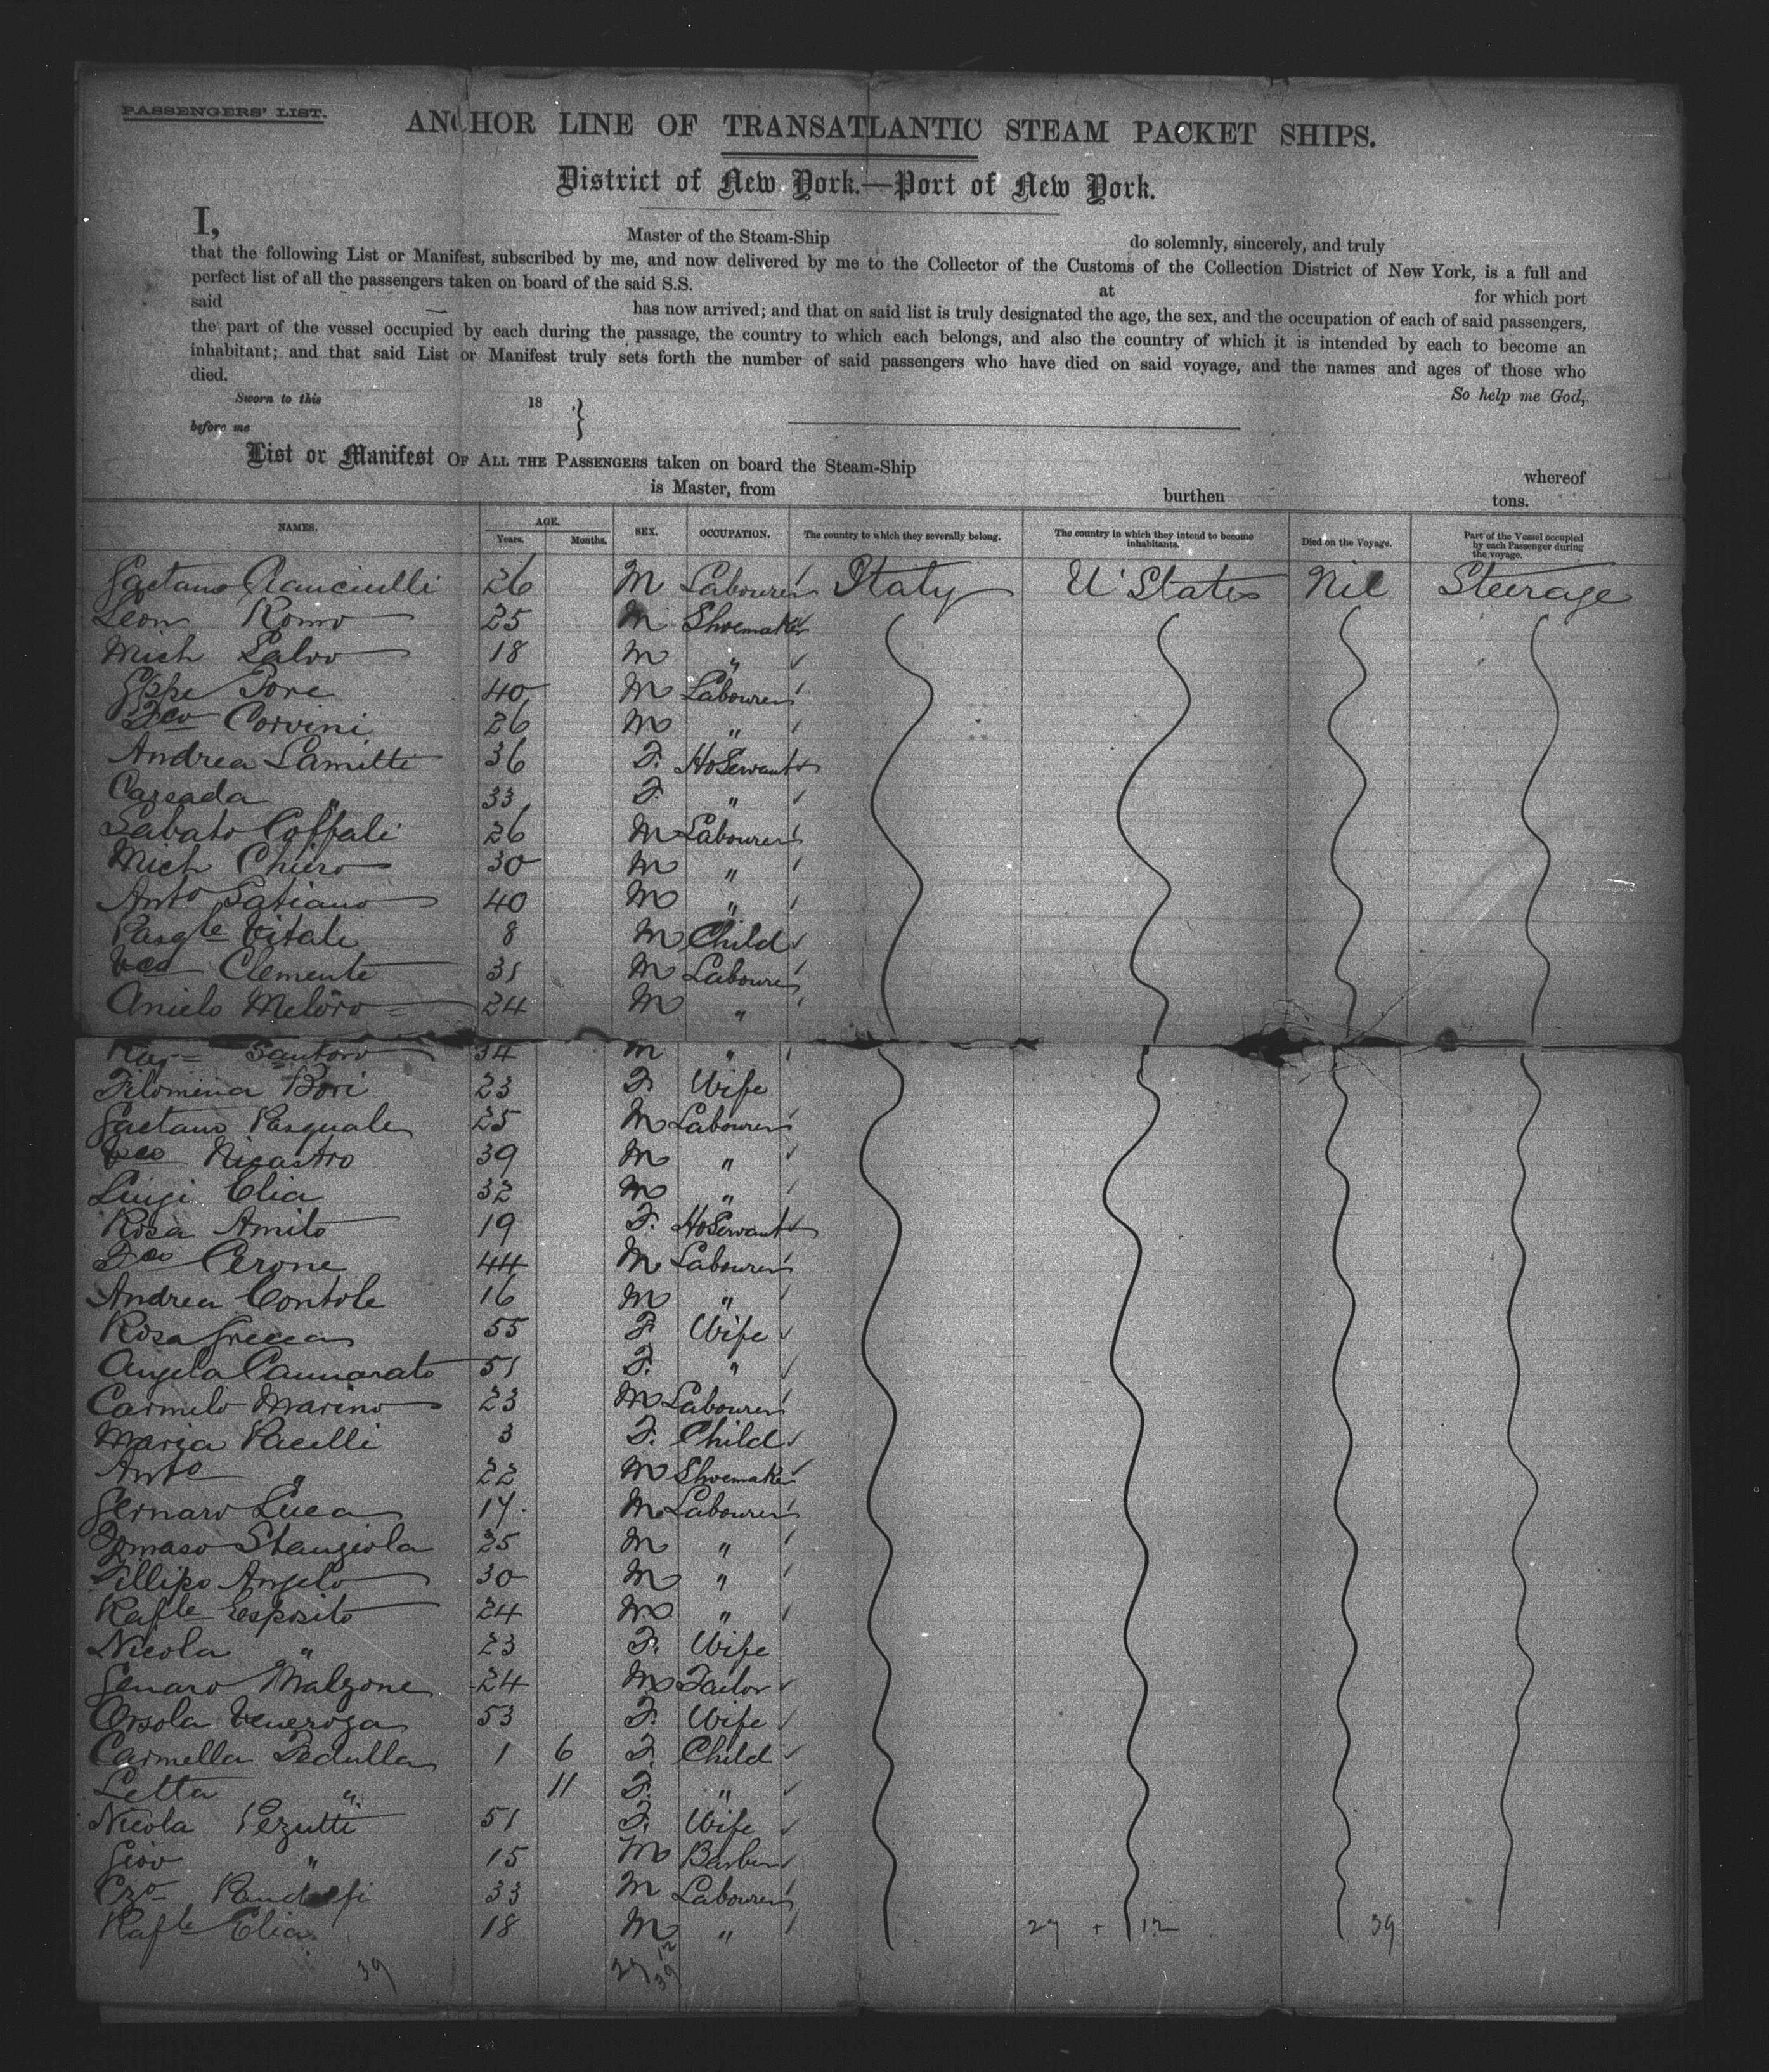 PASSENGERS' LIST.
ANCHOR LINE OF TRANSATLANTIC STEAM PACKET SHIPS.
District of New York.—Port of New York.
I, Master of the Steam-Ship do solemnly, sincerely, and truly
that the following List or Manifest, subscribed by me, and now delivered by me to the Collector of the Customs of the Collection District of New York, is a full and
perfect list of all the passengers taken on board of the said S.S. at for which port
said has now arrived; and that on said list is truly designated the age, the sex, and the occupation of each of said passengers,
the part of the vessel occupied by each during the passage, the country to which each belongs, and also the country of which it is intended by each to become an
inhabitant; and that said List or Manifest truly sets forth the number of said passengers who have died on said voyage, and the names and ages of those who
died. So help me God,
Sworn to this 18 }
before me
List or Manifest OF ALL THE PASSENGERS taken on board the Steam-Ship whereof
is Master, from burthen tons.
NAMES. AGE. Years. Months. SEX. OCCUPATION. The country to which they severally belong. The country in which they intend to become inhabitants. Died on the Voyage. Part of the Vessel occupied by each Passenger during the voyage.
Gaetano 26 M Labourer Italy U States Nil Steerage
Leon Romo 25 M Shoemaker
Mich Salvo 18 M "
Gppe Pore 40 M Labourer
Fco Corvini 26 M "
Andrea Lamitte 36 F. HoServant
Carsada " 33 F. "
Sabato Coffali 26 M Labourer
Mich Chiero 30 M "
Anto Satiano 40 M "
Pasqle Vitale 8 M Child
Vco Clemente 31 M Labourer
Anielo Meloro 24 M "
Raf Santoro 34 M "
Filomena Bori 23 F. Wife
Gaetano Pasquale 25 M Labourer
Vco Nicastro 39 M "
Luigi Elia 32 M "
Rosa Amito 19 F. HoServant
Fco Cerone 44 M Labourer
Andrea Contole 16 M "
Rosa Grecca 55 F Wife
Angela Cannarato 51 F. "
Carmelo Marino 23 M Labourer
Maria Pacelli 3 F. Child
Anto " 22 M Shoemaker
Gernaro Luca 17 M Labourer
Tomaso Stangiola 25 M "
Fillipo Angelo 30 M "
Rafle Esposito 24 M "
Nicola " 23 F. Wife
Genaro Malzone 24 M Tailor
Orsola Veneroza 53 F. Wife
Carmella Fedulla 1 6 F. Child
Letta " 11 F. "
Nicola Pezutti 51 F. Wife
Giov " 15 M Barber
Czo 33 M Labourer
Rafle Elia 18 M " 27 + 12 39
39 27 12 39